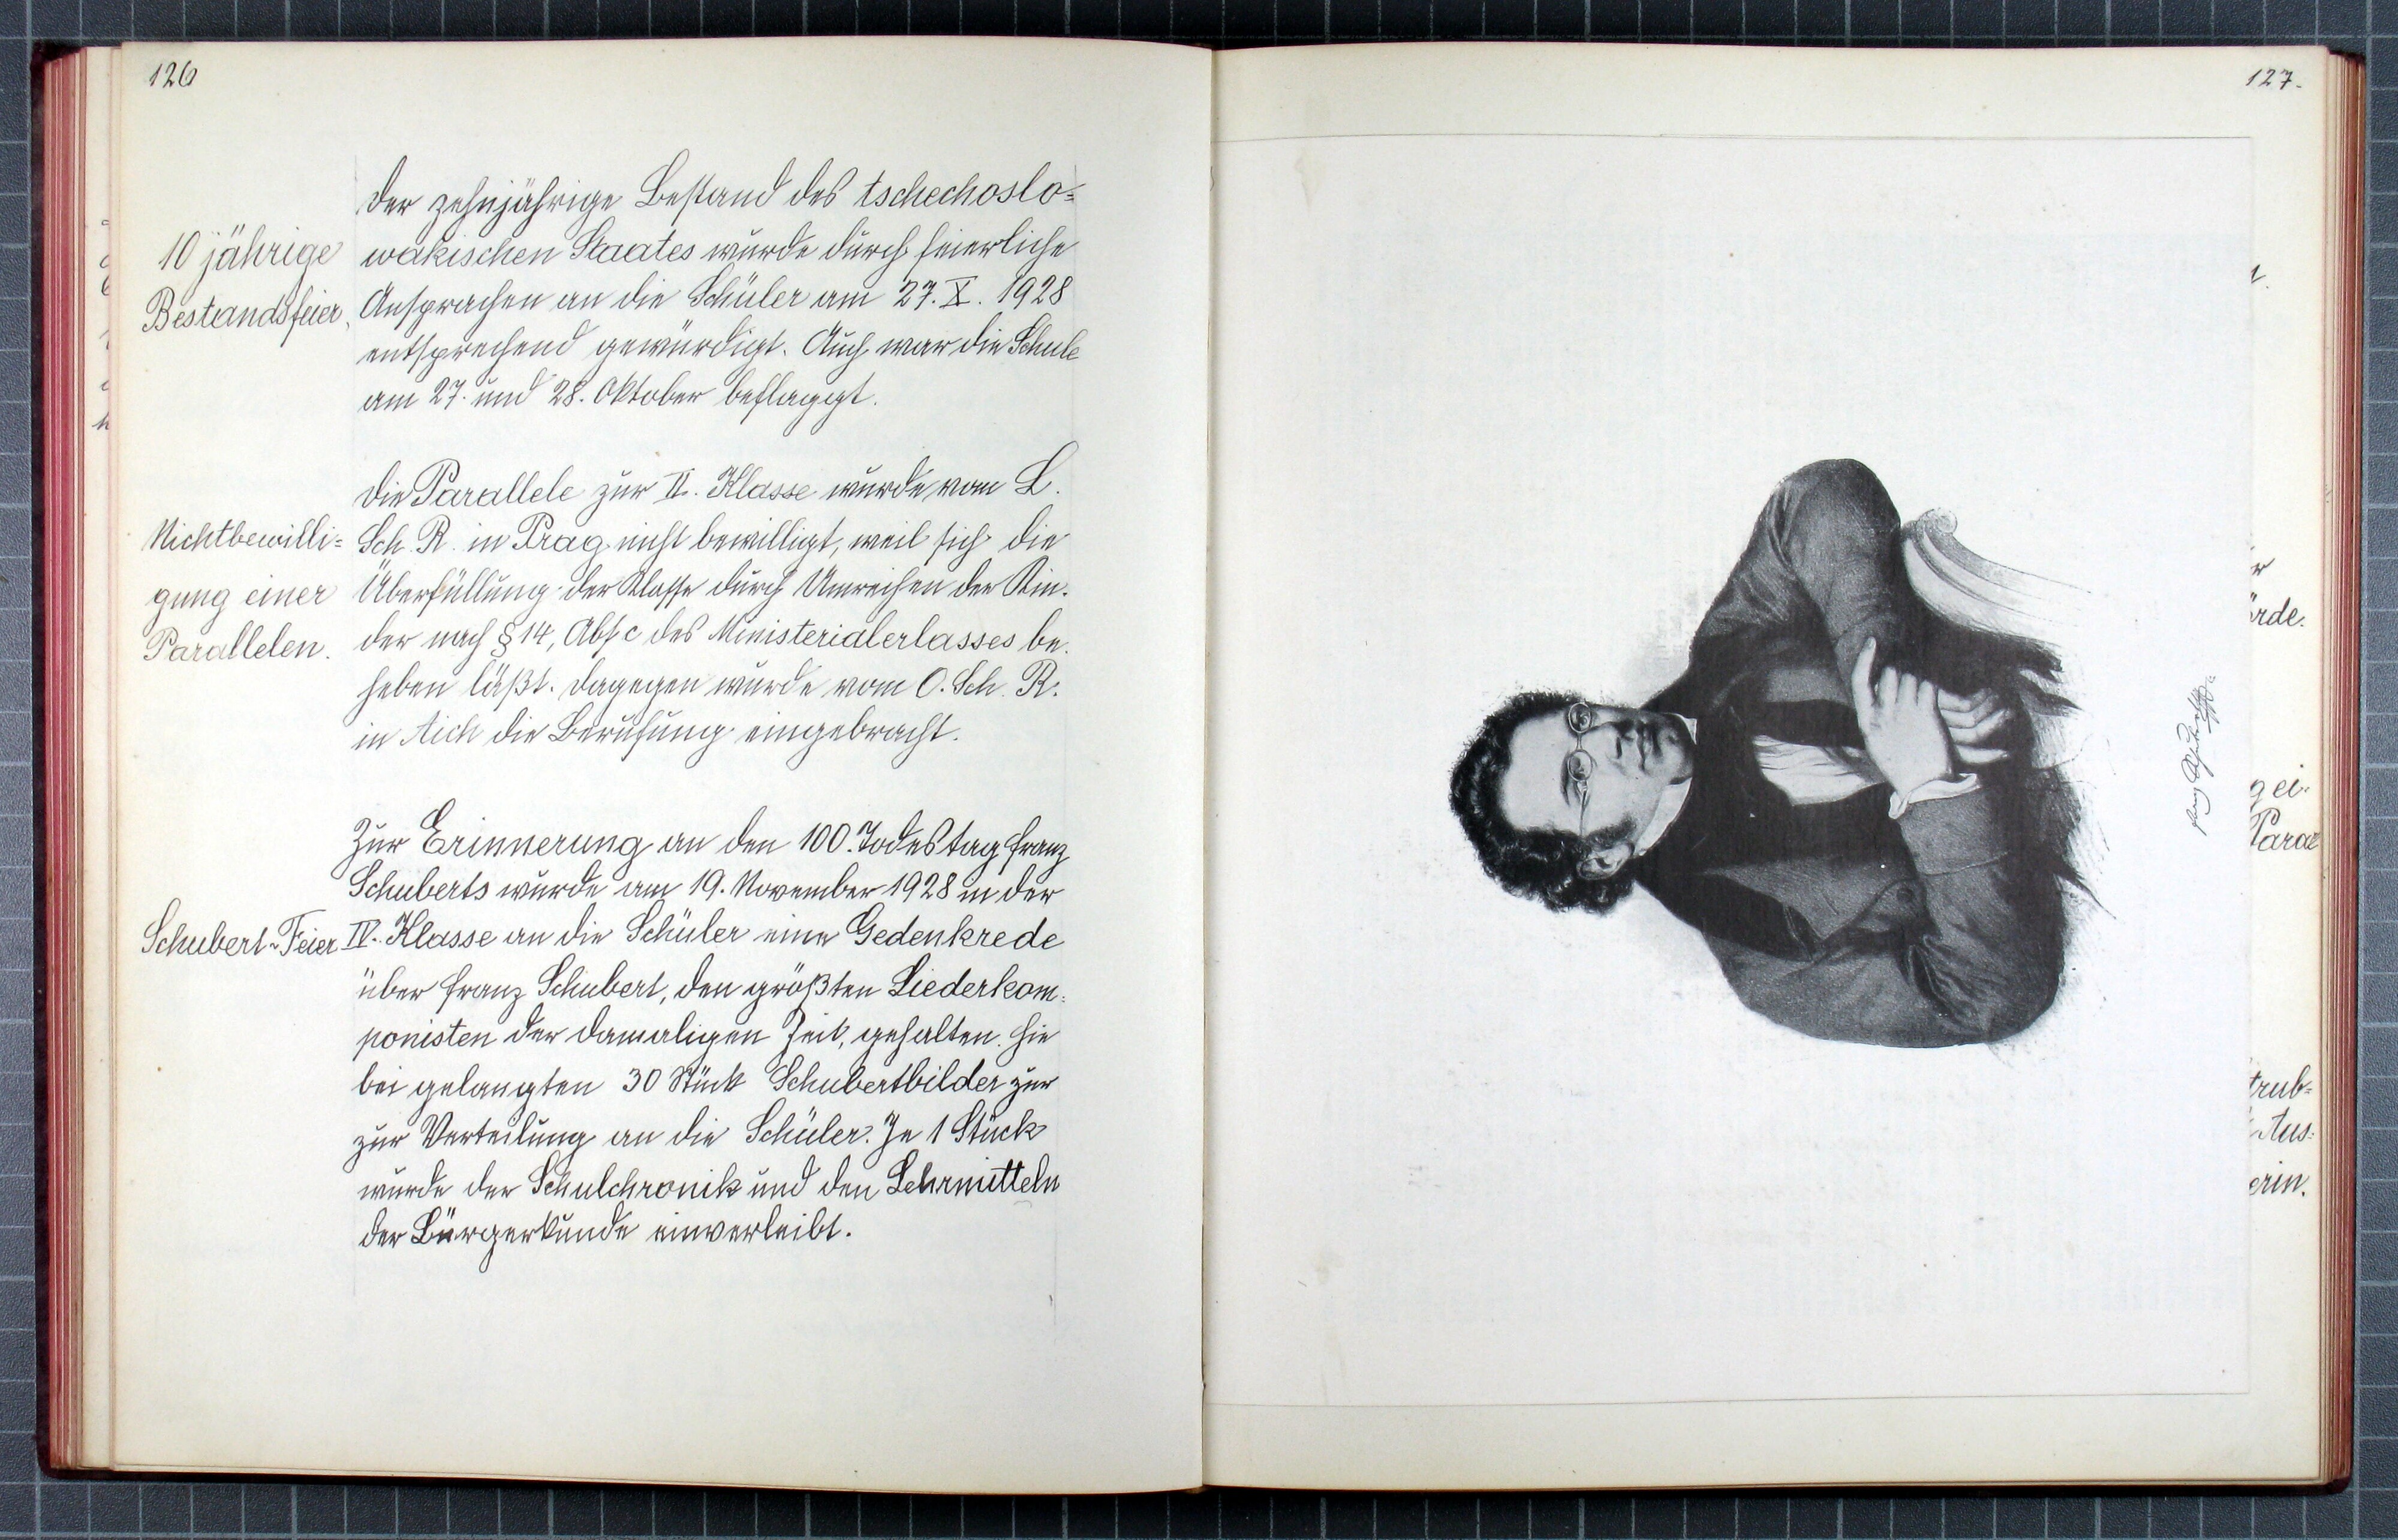 126
Der zehnjährige Bestand des tschechoslo=
10 jährige
wakischen Staates wurde durch feierliche
Bestandsfeier.
Ansprachen an die Schüler am 27. X. 1928
entsprechend gewürdigt. Auch war die Schule
am 27. und 28. Oktober beflaggt.
Die Parallele zur II. Klasse wurde vom L.
Nichtbewilli=
Sch. R. in Prag nicht bewilligt, weil sich die
gung einer
Überfüllung der Klasse durch Umreihen der Kin-
Parallelen.
der nach § 14, Abs c des Ministerialerlasses be-
heben läßt. Dagegen wurde vom O. Sch. R.
in Aich die Berufung eingebracht.
Zur Erinnerung an den 100. Todestag Franz
Schuberts wurde am 19. November 1928 in der
Schubert-Feier
IV. Klasse an die Schüler eine Gedenkrede
über Franz Schubert, den größten Liederkom=
ponisten der damaligen Zeit, gehalten. Hie
bei gelangten 30 Stück Schubertbilder zur
zur Verteilung an die Schüler. Je 1 Stück
wurde der Schulchronik und den Lehrmitteln
der Bürgerkunde einverleibt.
127.
rde.
g ei-
Para
trub=
Aus=
erin.